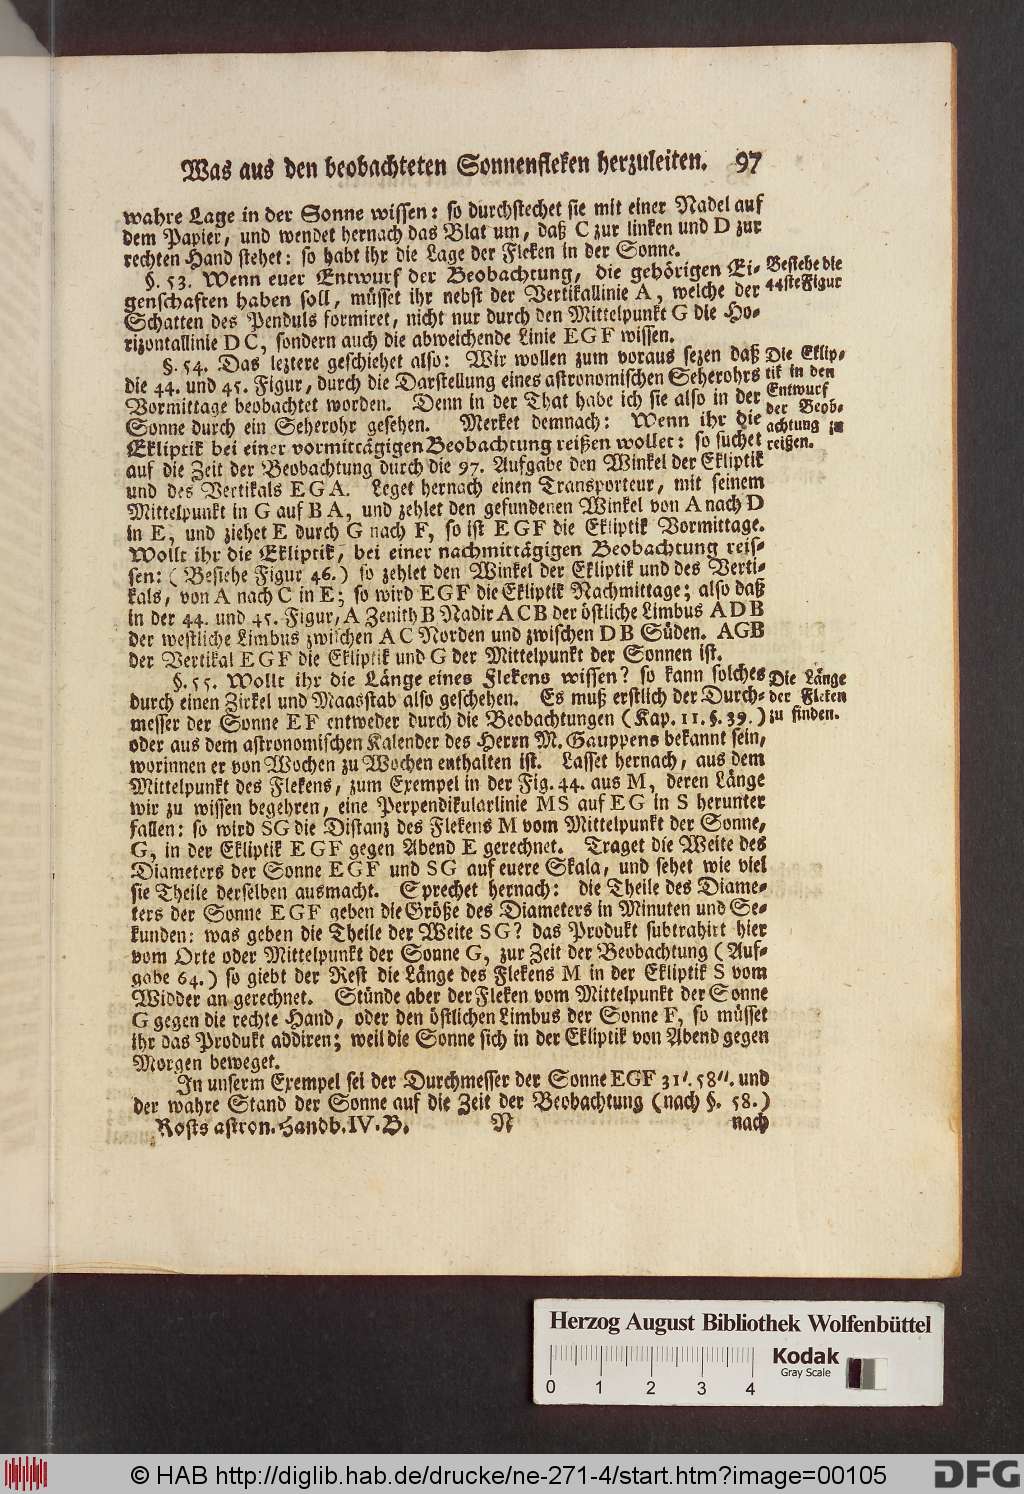 Was aus den beobachteten Sonnenfleken herzuleiten. 97
wahre Lage in der Sonne wissen: so durchstechet sie mit einer Nadel auf
dem Papier, und wendet hernach das Blat um, daß C zur linken und D zur
rechten Hand stehet: so habt ihr die Lage der Fleken in der Sonne.
§. 53. Wenn euer Entwurf der Beobachtung, die gehörigen Ei-
genschaften haben soll, müsset ihr nebst der Vertikallinie A, welche der
Schatten des Penduls formiret, nicht nur durch den Mittelpunkt G die Ho-
rizontallinie D C, sondern auch die abweichende Linie E G F wissen.
Bestehe die
44ste Figur
§. 54. Das leztere geschiehet also: Wir wollen zum voraus sezen daß
die 44. und 45. Figur, durch die Darstellung eines astronomischen Seherohrs
Vormittage beobachtet worden. Denn in der That habe ich sie also in der
Sonne durch ein Seherohr gesehen. Merket demnach: Wenn ihr die
Ekliptik bei einer vormittägigen Beobachtung reißen wollet: so suchet
auf die Zeit der Beobachtung durch die 97. Aufgabe den Winkel der Ekliptik
und des Vertikals E G A. Leget hernach einen Transporteur, mit seinem
Mittelpunkt in G auf B A, und zehlet den gefundenen Winkel von A nach D
in E, und ziehet E durch G nach F, so ist E G F die Ekliptik Vormittage.
Wollt ihr die Ekliptik, bei einer nachmittägigen Beobachtung reis-
sen: (Besiehe Figur 46.) so zehlet den Winkel der Ekliptik und des Verti-
kals, von A nach C in E; so wird E G F die Ekliptik Nachmittage; also daß
in der 44. und 45. Figur, A Zenith B Nadir A C B der östliche Limbus A D B
der westliche Limbus zwischen A C Norden und zwischen D B Süden. AGB
der Vertikal E G F die Ekliptik und G der Mittelpunkt der Sonnen ist.
Die Eklip-
tik in den
Entwurf
der Beob-
achtung zu
reißen.
§. 55. Wollt ihr die Länge eines Flekens wissen? so kann solches
durch einen Zirkel und Maasstab also geschehen. Es muß erstlich der Durch-
messer der Sonne E F entweder durch die Beobachtungen (Kap. 11. §. 39.)
oder aus dem astronomischen Kalender des Herrn M. Gauppens bekannt sein,
worinnen er von Wochen zu Wochen enthalten ist. Lasset hernach, aus dem
Mittelpunkt des Flekens, zum Exempel in der Fig. 44. aus M, deren Länge
wir zu wissen begehren, eine Perpendikularlinie MS auf E G in S herunter
fallen: so wird SG die Distanz des Flekens M vom Mittelpunkt der Sonne,
G, in der Ekliptik E G F gegen Abend E gerechnet. Traget die Weite des
Diameters der Sonne E G F und SG auf euere Skala, und sehet wie viel
sie Theile derselben ausmacht. Sprechet hernach: die Theile des Diame-
ters der Sonne E G F geben die Größe des Diameters in Minuten und Se-
kunden: was geben die Theile der Weite SG? das Produkt subtrahirt hier
vom Orte oder Mittelpunkt der Sonne G, zur Zeit der Beobachtung (Auf-
gabe 64.) so giebt der Rest die Länge des Flekens M in der Ekliptik S vom
Widder an gerechnet. Stünde aber der Fleken vom Mittelpunkt der Sonne
G gegen die rechte Hand, oder den östlichen Limbus der Sonne F, so müsset
ihr das Produkt addiren; weil die Sonne sich in der Ekliptik von Abend gegen
Morgen beweget.
Die Länge
der Fleken
zu finden.
In unserm Exempel sei der Durchmesser der Sonne EGF 31'. 58''. und
der wahre Stand der Sonne auf die Zeit der Beobachtung (nach §. 58.)
Rosts astron. Handb. IV. B. N nach
Herzog August Bibliothek Wolfenbüttel
0 1 2 3 4
Kodak
Gray Scale
© HAB http://diglib.hab.de/drucke/ne-271-4/start.htm?image=00105
DFG